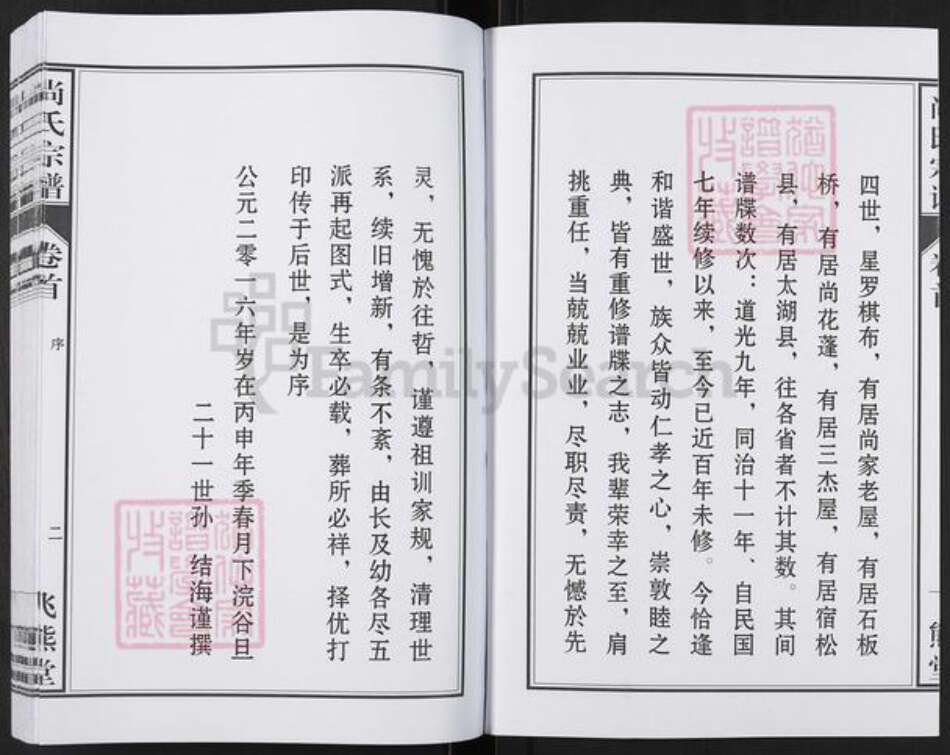 四世，星罗棋布，有居尚家老屋，有居石板
桥，有居尚花蓬，有居三杰屋，有居宿松
县，有居太湖县，往各省者不计其数。其间
谱牒数次：道光九年，同治十一年、自民国
七年续修以来，至今已近百年未修。今恰逢
和谐盛世，族众皆动仁孝之心，崇敦睦之
典，皆有重修谱牒之志，我辈荣幸之至，肩
挑重任，当兢兢业业，尽职尽责，无憾於先
灵，无愧於往哲，谨遵祖训家规，清理世
系，续旧增新，有条不紊，由长及幼各尽五
派再起图式，生卒必载，葬所必祥，择优打
印传于后世，是为序
公元二零一六年岁在丙申年季春月下浣谷旦
二十一世孙 结海谨撰
尚氏宗谱 卷首
序
二
兆熊堂
FamilySearch